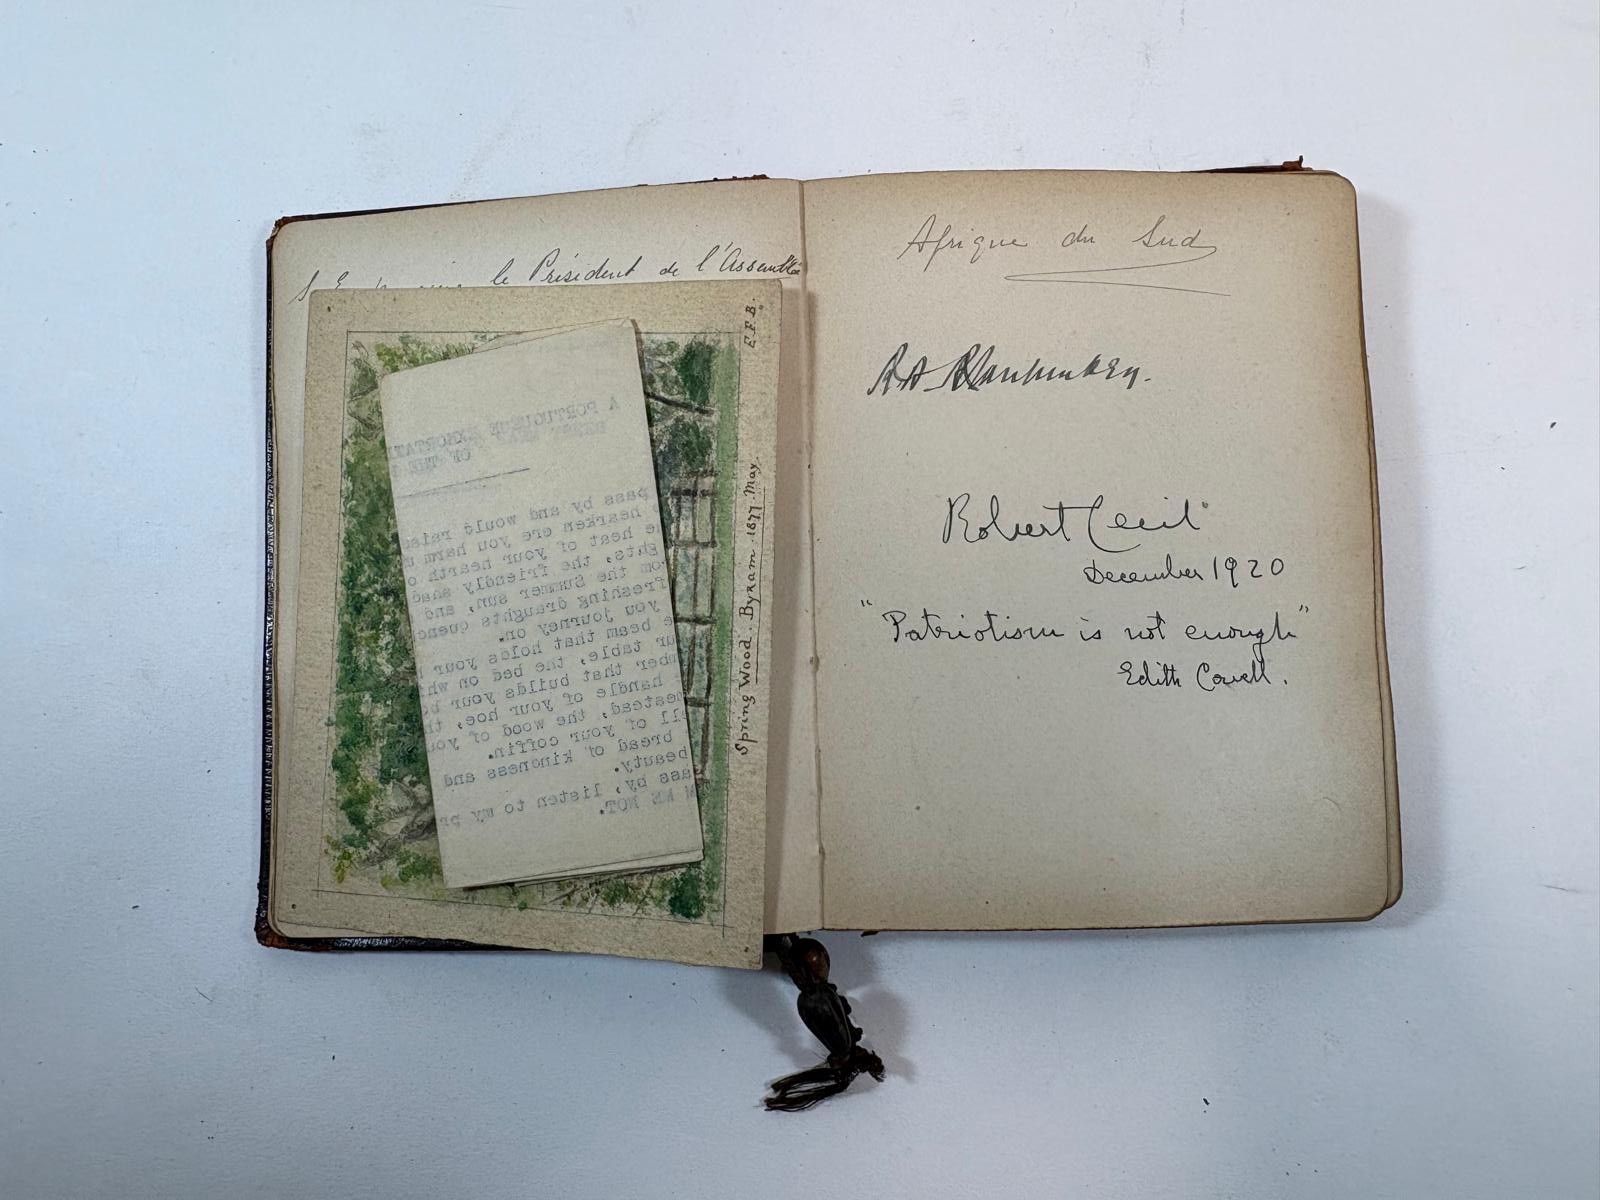 le Président de l'Assemblée
E.F.B.
Spring Wood. Byram. 1877. May.
A PORTUGUEUE EXHORTATI
OF THE
pass by and would raise
hearken ere you harm
heat of your hearth o
ghts, the friendly shad
om the Summer sun, and
freshing draughts quenc
you journey on.
e beam that holds your
ur table, the bed on wh
mber that builds your b
handle of your hoe, th
mestead, the wood of you
ll of your coffin.
bread of kindness and
beauty.
ass by, listen to my pr
M ME NOT.
Afrique du Sud
R A Blankenberg.
Robert Cecil
December 1920
"Patriotism is not enough"
Edith Cavell.